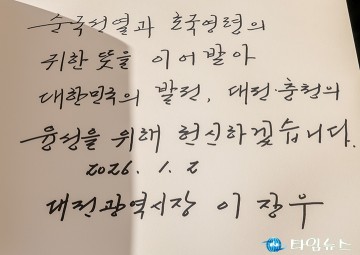 순국선열과 호국영령의
귀한 뜻을 이어받아
대한민국의 발전, 대전·충청의
융성을 위해 헌신하겠습니다.
2026. 1. 2
대전광역시장 이 장 우
타임뉴스